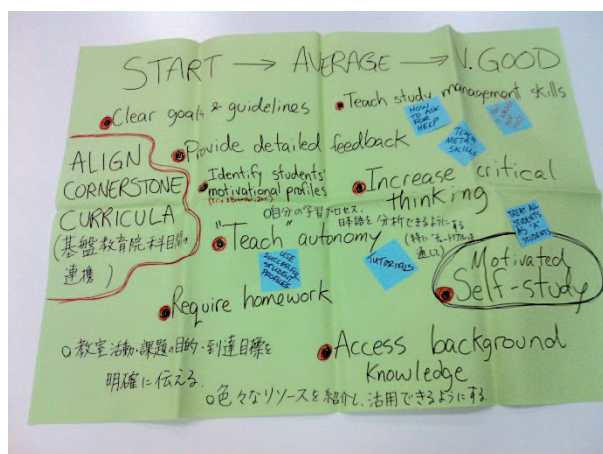 START → AVERAGE → V. GOOD
Clear goals & guidelines
Teach study management skills
HOW
TO ASK
FOR
HELP
TEACH
META
SKILLS
Provide detailed feedback
ALIGN
CORNERSTONE
CURRICULA
(基盤教育院科目間の
連携)
Identify students'
motivational profiles
Increase critical
thinking
○自分の学習プロセス、
日本語を分析できるようにする
"Teach" autonomy
USE
SUCCESSFUL
STUDENT
PROFILES
TUTORIALS
TREAT ALL
STUDENTS
AS "A"
STUDENTS
Motivated
Self-study
Require homework
○教室活動・課題の目的・到達目標を
明確に伝える。
Access background
knowledge
○色々なリソースを紹介し、活用できるようにする